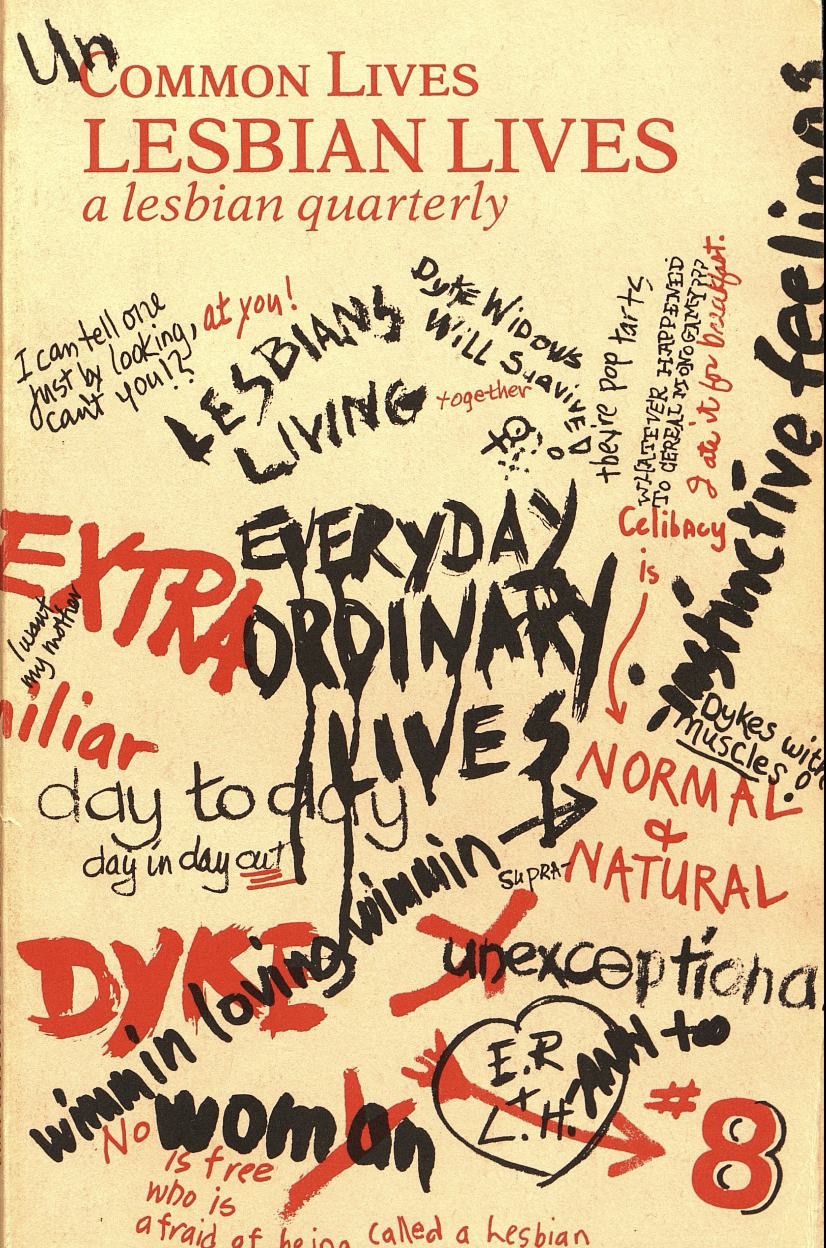 Un
COMMON LIVES
LESBIAN LIVES
a lesbian quarterly
I can tell one
just by looking,
can't you!?
at you!
LESBIANS
LIVING
together
DyKE WIDOWS
WILL SURVIVE
they're pop tarts
WHATEVER HAPPENED
TO CEREAL MONOGAMY???
I ate it for breakfast.
instinctive feelings
Celibacy
is
NORMAL
&
NATURAL
SUPRA-
EXTRA
EVERYDAY
ORDINARY
LIVES
I want
my mother
miliar
Dykes with
muscles!
day to day
day in day out
DYKE
wimmin loving wimmin
unexceptional
E.R
+
L.H.
#8
No woman
is free
who is
afraid of being called a Lesbian